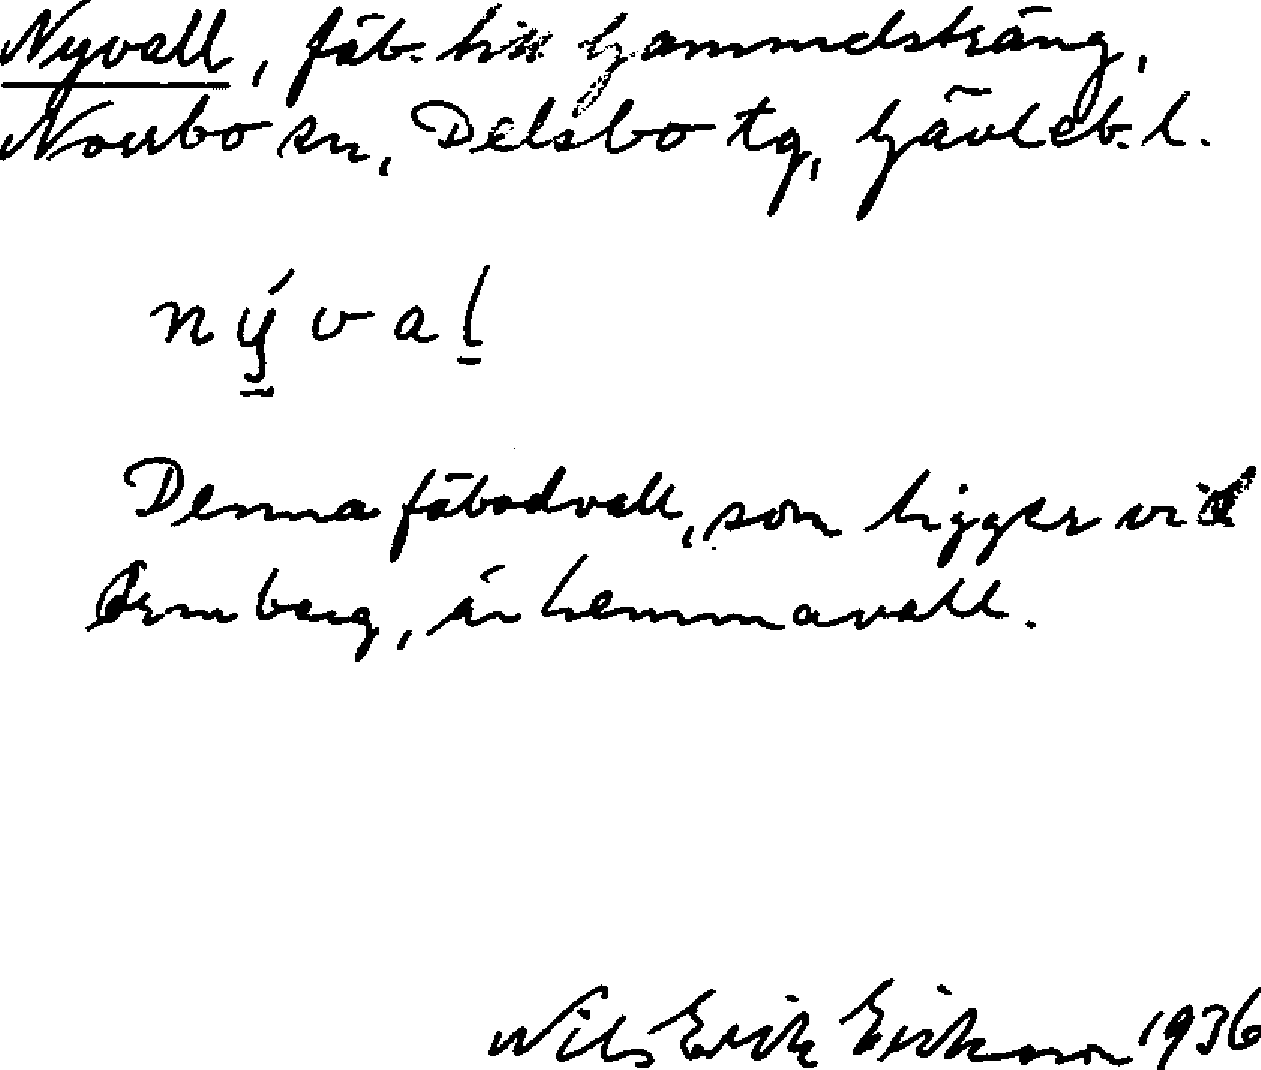 Nyvall, fäb. till Gammelsträng,
Norrbo sn, Delsbo tg, Gävleb. l.
nýval
Denna fäbodvall, som ligger vid
berg, är hemmavall.
Nils Erik Erikson 1936